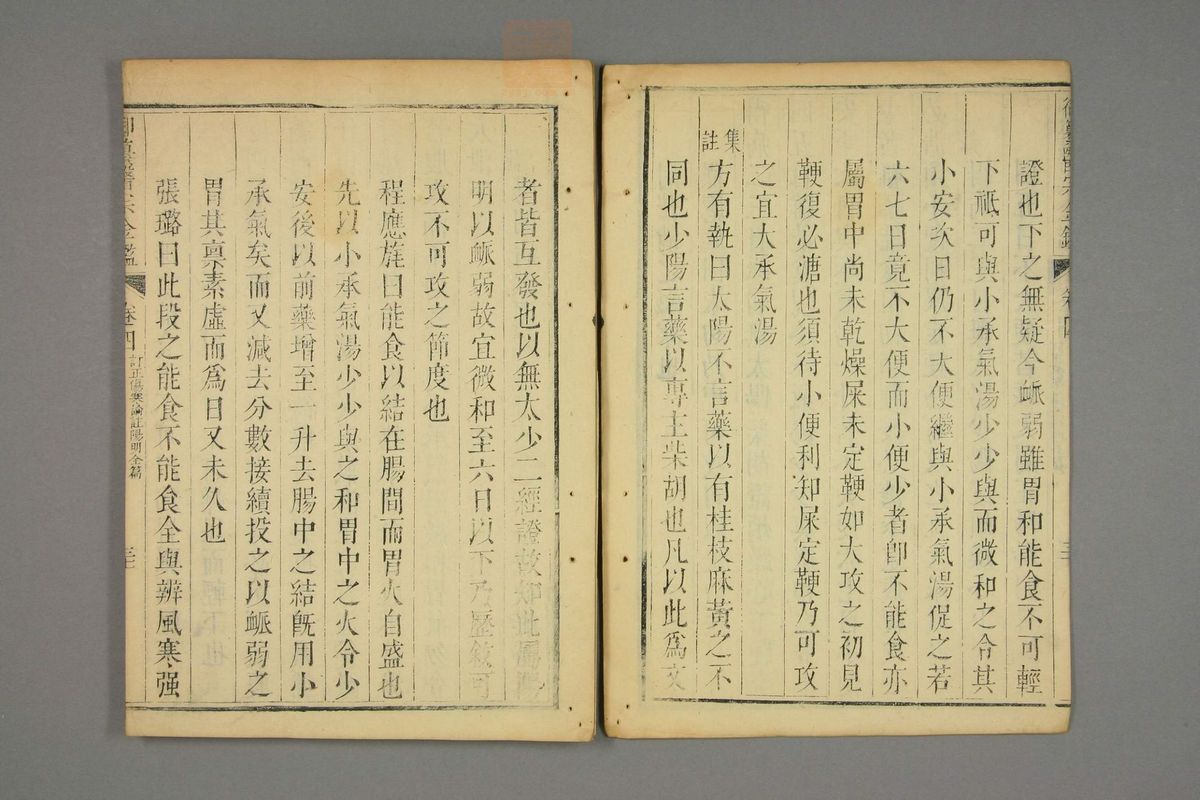 證也下之無疑今衇弱雖胃和能食不可輕
下祇可與小承氣湯少少與而微和之令其
小安次日仍不大便繼與小承氣湯促之若
六七日竟不大便而小便少者卽不能食亦
屬胃中尚未乾燥屎未定鞕如大攻之初見
鞕復必溏也須待小便利知屎定鞕乃可攻
之宜大承氣湯
集註
方有執曰太陽不言藥以有桂枝麻黃之不
同也少陽言藥以專主柴胡也凡以此爲文
者皆互發也以無太少二經證故知此屬陽
明以衇弱故宜微和至六日以下乃歷敘可
攻不可攻之節度也
程應旄曰能食以結在腸間而胃火自盛也
先以小承氣湯少少與之和胃中之火令少
安後以前藥增至一升去腸中之結旣用小
承氣矣而又減去分數接續投之以衇弱之
胃其稟素虛而爲日又未久也
張璐曰此段之能食不能食全與辨風寒强
醫宗金鑑
卷四
訂正傷寒論註陽明全篇